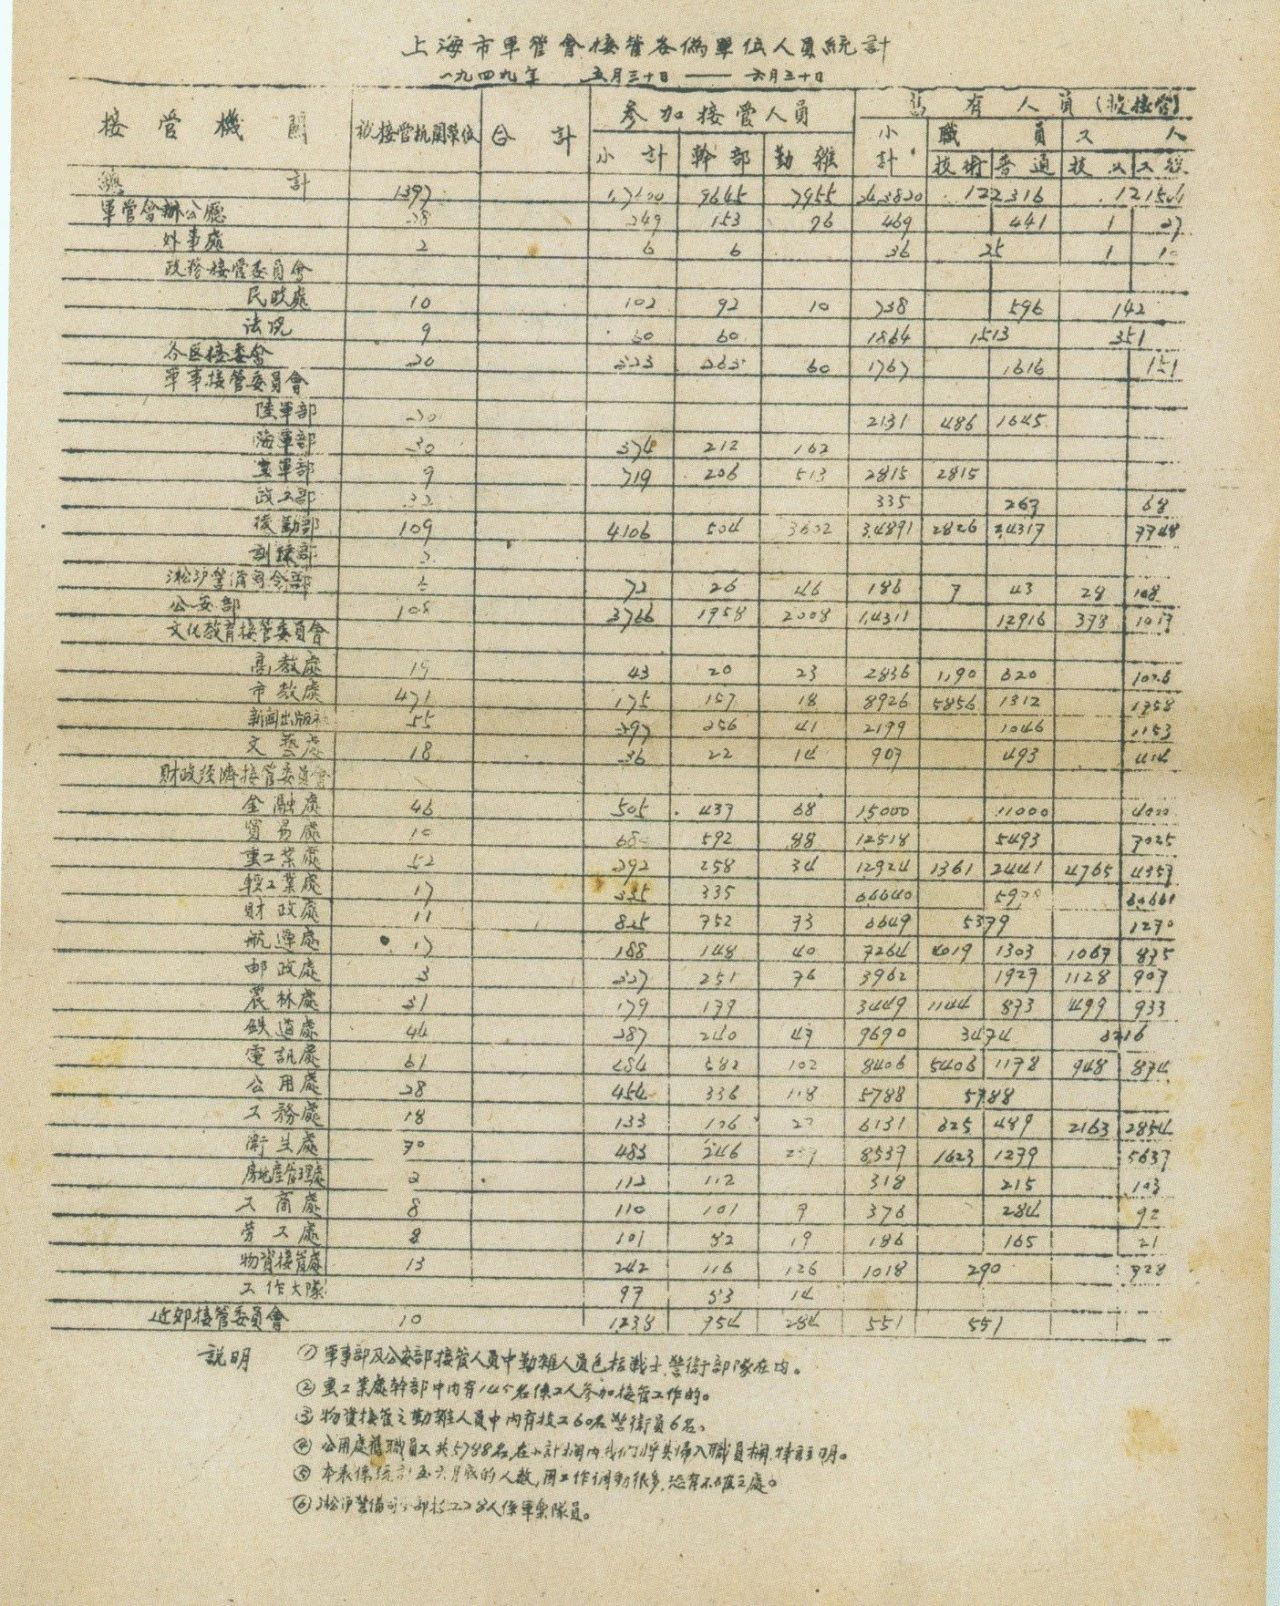 上海市軍管會接管各偽單位人員統計
一九四九年 五月三十日 —— 六月三十日
接管機關 被接管机関單位 合計 參加接管人員 舊有人員(被接管)
小計 職員 工人
小計 幹部 勤雜 技術 普通 技工
計 1397 9645 7955 243820 122316
軍管會辦公廳 249 153 96 469 441 1 27
外事處 2 6 6 36 25 1 10
政務接管委員會
民政處 10 102 92 10 738 596 142
法院 9 60 60 1864 1513 351
各區接委會 20 323 263 60 1767 1616 151
軍事接管委員會
陸軍部 30 2131 486 1645
海軍部 30 374 212 162
空軍部 9 719 206 513 2815 2815
政工部 32 335 267 68
後勤部 109 4106 504 3602 34891 2826 24317 7748
訓練部
淞沪警備司令部 6 72 26 46 186 7 43 28 108
公安部 105 3766 1958 14311 12916 378 1017
文化教育接管委員會
高教處 43 20 23 2836 1190 620 1026
市教處 471 175 157 18 8926 5856 1312 1758
新聞出版 55 297 256 41 2199 1046 1153
文藝處 18 36 22 14 907 493 414
財政經濟接管委員會
金融處 46 505 437 68 15000 11000 4000
貿易處 10 680 592 88 12518 5493 7025
重工業處 52 292 258 34 12924 1361 2441 4765 4357
輕工業處 17 335 335 66640
財政處 11 825 752 73 6649 5379 1270
航運處 17 188 148 40 7264 4019 1303 1067 875
郵政處 3 327 251 76 3962 1927 1128 907
農林處 31 179 179 3449 1144 873 499 933
鉄道處 44 287 240 47 9690 3474 6216
電訊處 61 684 582 102 8406 5406 1178 948 874
公用處 28 454 336 118 5788 5788
工務處 18 133 106 27 6131 625 489 2163 2854
衛生處 70 483 246 8539 1623 1279 5637
房地產管理處 2 112 112 318 215 103
工商處 8 110 101 9 376 284 92
勞工處 8 101 82 19 186 165 21
物資接管處 13 242 116 126 1018 290 728
工作大隊 97 83 14
近郊接管委員會 10 1238 954 284 551 551
說明 ①軍事部及公安部接管人員中勤雜人員包括戰士、警衛部隊在内。
②重工業處幹部中内有145名係工人參加接管工作的。
③物資接管之勤雜人員中内有技工60名警衛員6名。
④公用處舊職員工共5788名,在小計欄内我们将其归入職員欄,特註明。
⑤本表係統計至六月底的人數,因工作调動很多,恐有不確之處。
⑥淞沪警備司令部技工28人係軍樂隊員。